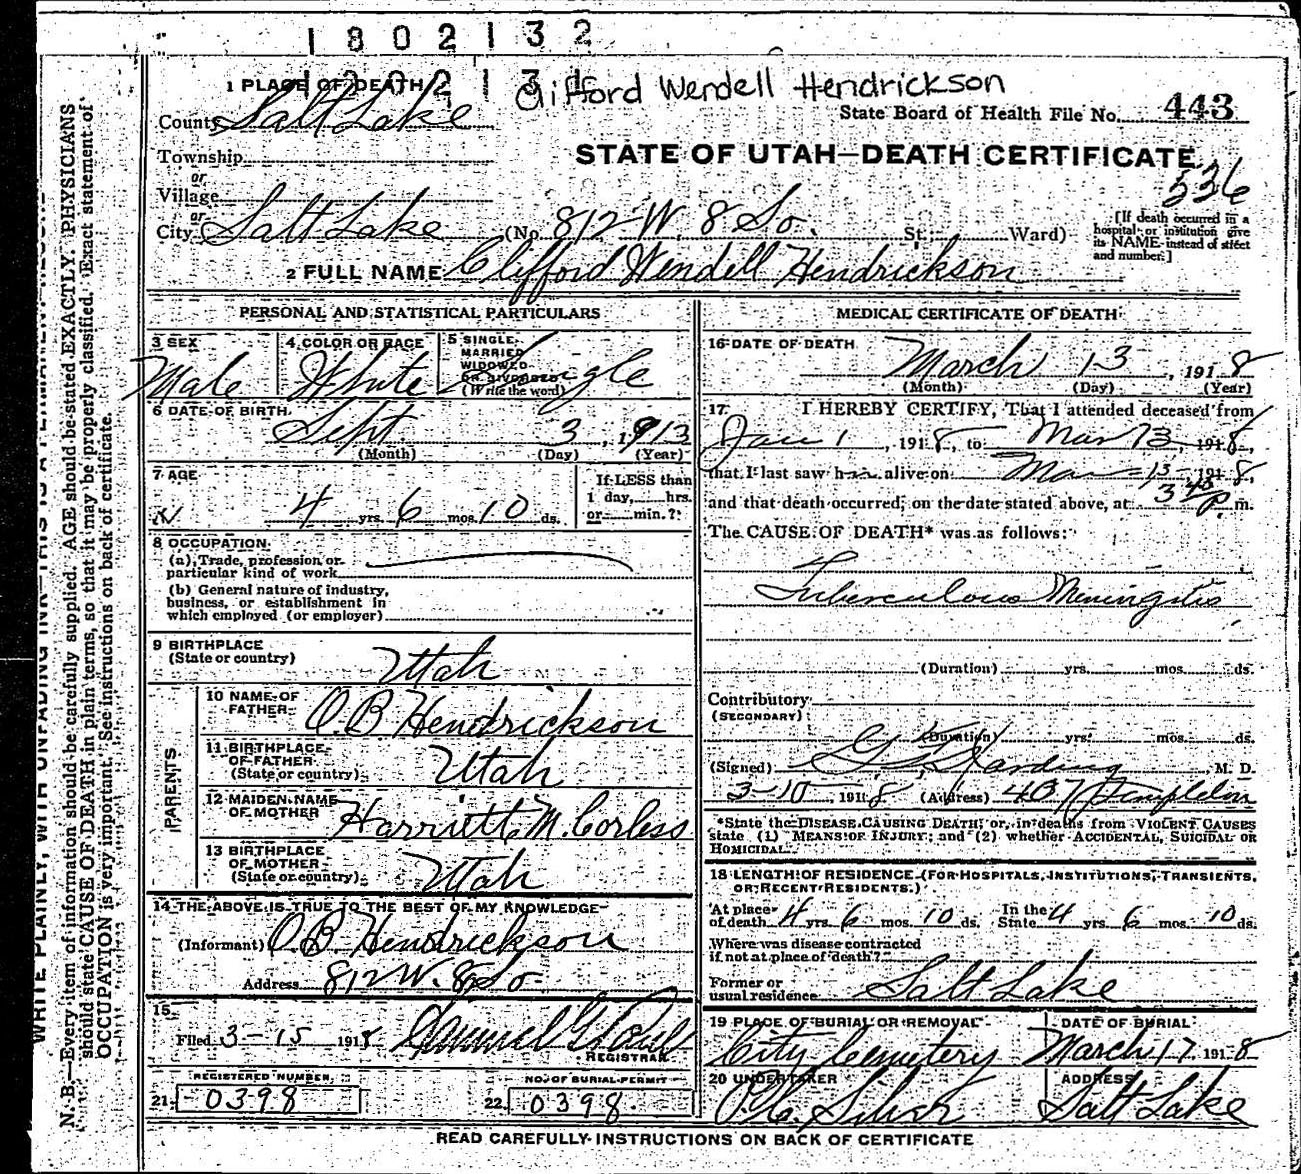 1802132
1 PLACE OF DEATH
Clifford Wendell Hendrickson
County Salt Lake
State Board of Health File No. 443
Township
or
STATE OF UTAH—DEATH CERTIFICATE
536
Village
or
City Salt Lake (No. 812 W. 8 So. St. Ward)
[If death occurred in a hospital or institution give its NAME instead of street and number.]
2 FULL NAME Clifford Wendell Hendrickson
PERSONAL AND STATISTICAL PARTICULARS
3 SEX
Male
4 COLOR OR RACE
White
5 SINGLE, MARRIED, WIDOWED OR DIVORCED (Write the word)
Single
6 DATE OF BIRTH
Sept 3, 1913
(Month) (Day) (Year)
7 AGE
4 yrs. 6 mos. 10 ds.
If LESS than 1 day, hrs. or min.?
8 OCCUPATION
(a) Trade, profession or
particular kind of work
(b) General nature of industry,
business, or establishment in
which employed (or employer)
9 BIRTHPLACE
(State or country) Utah
PARENTS
10 NAME OF
FATHER O.B. Hendrickson
11 BIRTHPLACE
OF FATHER
(State or country) Utah
12 MAIDEN NAME
OF MOTHER Harriett M. Corless
13 BIRTHPLACE
OF MOTHER
(State or country) Utah
14 THE ABOVE IS TRUE TO THE BEST OF MY KNOWLEDGE
(Informant) O B Hendrickson
Address 812 W. 8 So.
15
Filed 3-15 1918
REGISTRAR
REGISTERED NUMBER
21 0398
NO. OF BURIAL PERMIT
22 0398
MEDICAL CERTIFICATE OF DEATH
16 DATE OF DEATH
March 13, 1918
(Month) (Day) (Year)
17 I HEREBY CERTIFY, That I attended deceased from
Jan 1, 1918, to Mar 13, 1918,
that I last saw h alive on Mar 13 1918,
and that death occurred, on the date stated above, at 3 P. m.
The CAUSE OF DEATH* was as follows:
Tuberculous Meningitis
(Duration) yrs. mos. ds.
Contributory
(SECONDARY)
(Duration) yrs. mos. ds.
(Signed) Harding, M. D.
3-10, 1918 (Address) 407 Templeton
*State the DISEASE CAUSING DEATH, or, in deaths from VIOLENT CAUSES
state (1) MEANS OF INJURY; and (2) whether ACCIDENTAL, SUICIDAL OR
HOMICIDAL.
18 LENGTH OF RESIDENCE (FOR HOSPITALS, INSTITUTIONS, TRANSIENTS,
OR RECENT RESIDENTS.)
At place of death 4 yrs. 6 mos. 10 ds. In the State 4 yrs. 6 mos. 10 ds.
Where was disease contracted
if not at place of death?
Former or
usual residence Salt Lake
19 PLACE OF BURIAL OR REMOVAL
City Cemetery
DATE OF BURIAL
March 17 1918
20 UNDERTAKER
ADDRESS
Salt Lake
READ CAREFULLY INSTRUCTIONS ON BACK OF CERTIFICATE
N. B.—Every item of information should be carefully supplied. AGE should be stated EXACTLY. PHYSICIANS
should state CAUSE OF DEATH in plain terms, so that it may be properly classified. Exact statement of
OCCUPATION is very important. See instructions on back of certificate.